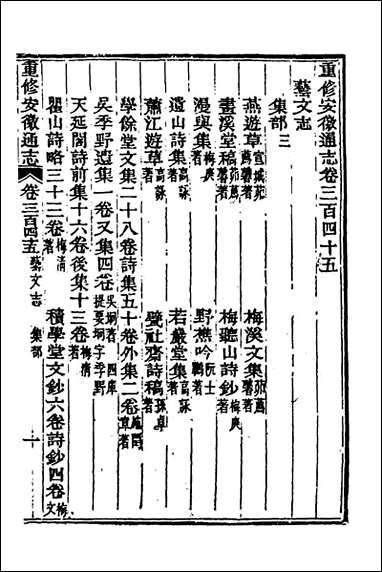 重修安徽通志卷三百四十五
藝文志
集部三
燕遊草宣城苑萬馨著 梅溪文集苑萬馨著
畫溪堂稿苑萬馨著 梅聽山詩鈔梅庚著
漫與集梅庚著 野樵吟阮士鵬著
遺山詩集高詠著 若巖堂集高詠著
蕭江遊草高詠著 璧社齋詩稿孫卓著
學餘堂文集二十八卷詩集五十卷外集二卷施閏章著
吳季野遺集一卷又集四卷吳坰著四庫提要坰字季野
天延閣詩前集十六卷後集十三卷梅清著
瞿山詩略三十三卷梅清著 積學堂文鈔六卷詩鈔四卷梅文
重修安徽通志 卷三百四十五 藝文志 集部 一